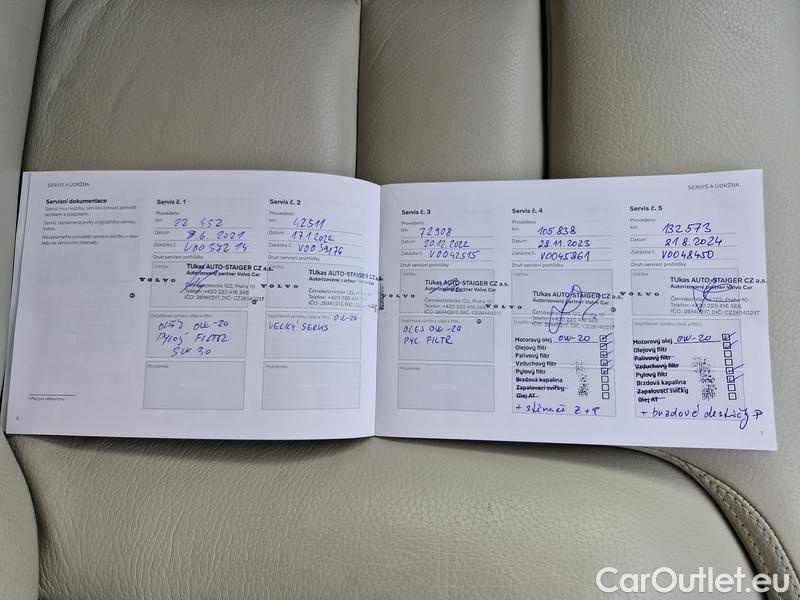 SERVIS A ÚDRŽBA
Servisní dokumentace
Servis č. 1
Provedeno
km 22 432
Datum 8.6.2021
Zakázka č. V0037214
Druh servisní prohlídky
Údržba
TUkas AUTO-STAIGER CZ a.s.
Autorizovaný partner Volvo Car
Černokostelecká 122, Praha 10
Telefon: +420 220 416 366
IČO: 26140217, DIČ: CZ26140217
VOLVO
Doplňkové výměny oleje a filtru
OLEJ OW-20
PYLOVÝ FILTR
Poznámka
Servis č. 2
Provedeno
km 42511
Datum 17.1.2022
Zakázka č. V0039176
Druh servisní prohlídky
TUkas AUTO-STAIGER CZ a.s.
Autorizovaný partner Volvo Car
Černokostelecká 122, Praha 10
Telefon: +420 220 416 366
IČO: 26140217, DIČ: CZ26140217
VOLVO
Doplňkové výměny oleje a filtru
OW-20
VELKÝ SERVIS
Poznámka
6
SERVIS A ÚDRŽBA
Servis č. 3
Provedeno
km 72908
Datum 20.12.2022
Zakázka č. V0042515
Druh servisní prohlídky
Údržba
TUkas AUTO-STAIGER CZ a.s.
Autorizovaný partner Volvo Car
Černokostelecká 122, Praha 10
Telefon: +420 220 416 366
IČO: 26140217, DIČ: CZ26140217
VOLVO
Doplňkové výměny oleje a filtru
OLEJ OW-20
PYL. FILTR
Poznámka
Servis č. 4
Provedeno
km 105838
Datum 28.11.2023
Zakázka č. V0045861
Druh servisní prohlídky
Údržba
TUkas AUTO-STAIGER CZ a.s.
Autorizovaný partner Volvo Car
Černokostelecká 122, Praha 10
Telefon: +420 220 416 366
IČO: 26140217, DIČ: CZ26140217
VOLVO
Doplňkové výměny oleje a filtru
Motorový olej OW-20
Olejový filtr
Palivový filtr
Vzduchový filtr
Pylový filtr
Brzdová kapalina
Zapalovací svíčky
Olej AT
+ stěrače Z+P
Servis č. 5
Provedeno
km 132573
Datum 21.8.2024
Zakázka č. V0048450
Druh servisní prohlídky
Údržba
TUkas AUTO-STAIGER CZ a.s.
Autorizovaný partner Volvo Car
Černokostelecká 122, Praha 10
Telefon: +420 220 416 366
IČO: 26140217, DIČ: CZ26140217
VOLVO
Doplňkové výměny oleje a filtru
Motorový olej OW-20
Olejový filtr
Palivový filtr
Vzduchový filtr
Pylový filtr
Brzdová kapalina
Zapalovací svíčky
Olej AT
+ brzdové destičky P
7
CarOutlet.eu